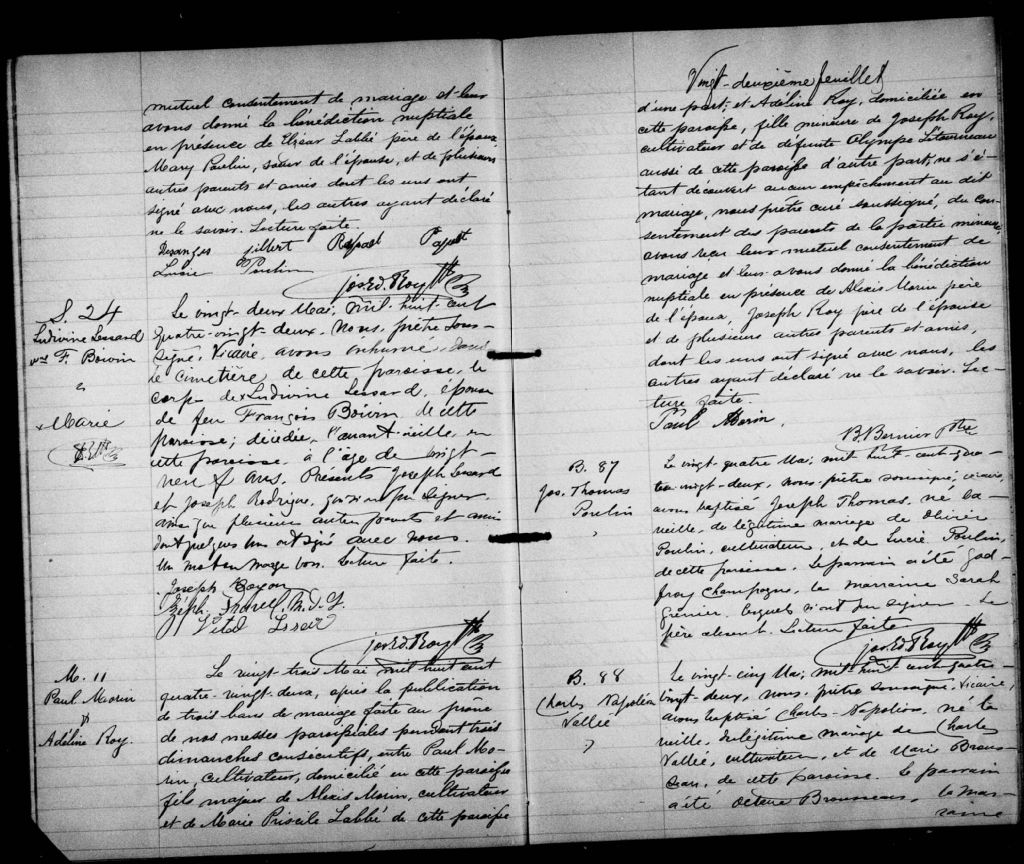 mutuel consentement de mariage et leur
avons donné la bénédiction nuptiale
en présence de Elzéar Labbé père de l'époux,
Mary Poulin, sœur de l'épouse, et de plusieurs
autres parents et amis dont les uns ont
signé avec nous, les autres ayant déclaré
ne le savoir. Lecture faite.
Desanges Gilbert
Lucie Poulin
Jos. Ed. Roy Ptre
S. 24
Ludivine Lessard
F. Boivin
"
Marie
Le vingt-deux Mai, mil-huit-cent
quatre-vingt-deux, Nous, prêtre sous-
signé, Vicaire, avons inhumé, dans
le cimetière de cette paroisse, le
corps de Ludivine Lessard, épouse
de feu François Boivin, de cette
paroisse; décédée, l'avant-veille, en
cette paroisse, à l'âge de vingt-
neuf ans. Présents Joseph Lessard
et Joseph Rodrigue, qui n'ont pu signer,
ainsi que plusieurs autres parents et amis
dont quelques uns ont signé avec nous.
Un mot en marge bon. Lecture faite.
Joseph
Zéph.
Vital
Jos. Ed. Roy Ptre
M. 11
Paul Morin
&
Adéline Roy.
Le vingt trois Mai mil huit cent
quatre-vingt-deux, après la publication
de trois bans de mariage faite au prône
de nos messes paroissiales pendant trois
dimanches consécutifs, entre Paul Mo-
rin, cultivateur, domicilié en cette paroisse
fils majeur de Alexis Morin, cultivateur
et de Marie Priscile Labbé de cette paroisse
Vingt-deuxième feuillet
d'une part; et Adéline Roy, domiciliée en
cette paroisse, fille mineure de Joseph Roy,
cultivateur et de défunte Olympe Létourneau
aussi de cette paroisse d'autre part; ne s'é-
tant découvert aucun empêchement au dit
mariage, nous prêtre curé soussigné, du con-
sentement des parents de la partie mineure,
avons reçu leur mutuel consentement de
mariage et leur avons donné la bénédiction
nuptiale en présence de Alexis Morin père
de l'époux, Joseph Roy père de l'épouse
et de plusieurs autres parents et amis,
dont les uns ont signé avec nous, les
autres ayant déclaré ne le savoir. Lec-
ture faite.
Paul Morin.
B. Bernier Ptre
B. 87
Jos. Thomas
Poulin
Le vingt-quatre Mai, mil huit-cent-qua-
tre-vingt-deux, nous, prêtre soussigné, vicaire,
avons baptisé Joseph Thomas, né la
veille, de légitime mariage de Olivier
Poulin, cultivateur, et de Lucie Poulin,
de cette paroisse. Le parrain a été God-
froy Champagne, la marraine Sarah
Grenier, lesquels n'ont pu signer. Le
père absent. Lecture faite
Jos. Ed. Roy Ptre
B. 88
Charles Napoléon
Vallée
Le vingt-cinq Mai, mil-huit-cent-quatre-
vingt-deux, nous, prêtre soussigné, Vicaire,
avons baptisé Charles-Napoléon, né la
veille, de légitime mariage de Charles
Vallée, cultivateur, et de Marie Brous-
seau, de cette paroisse. Le parrain
a été Octave Brousseau, la mar-
raine